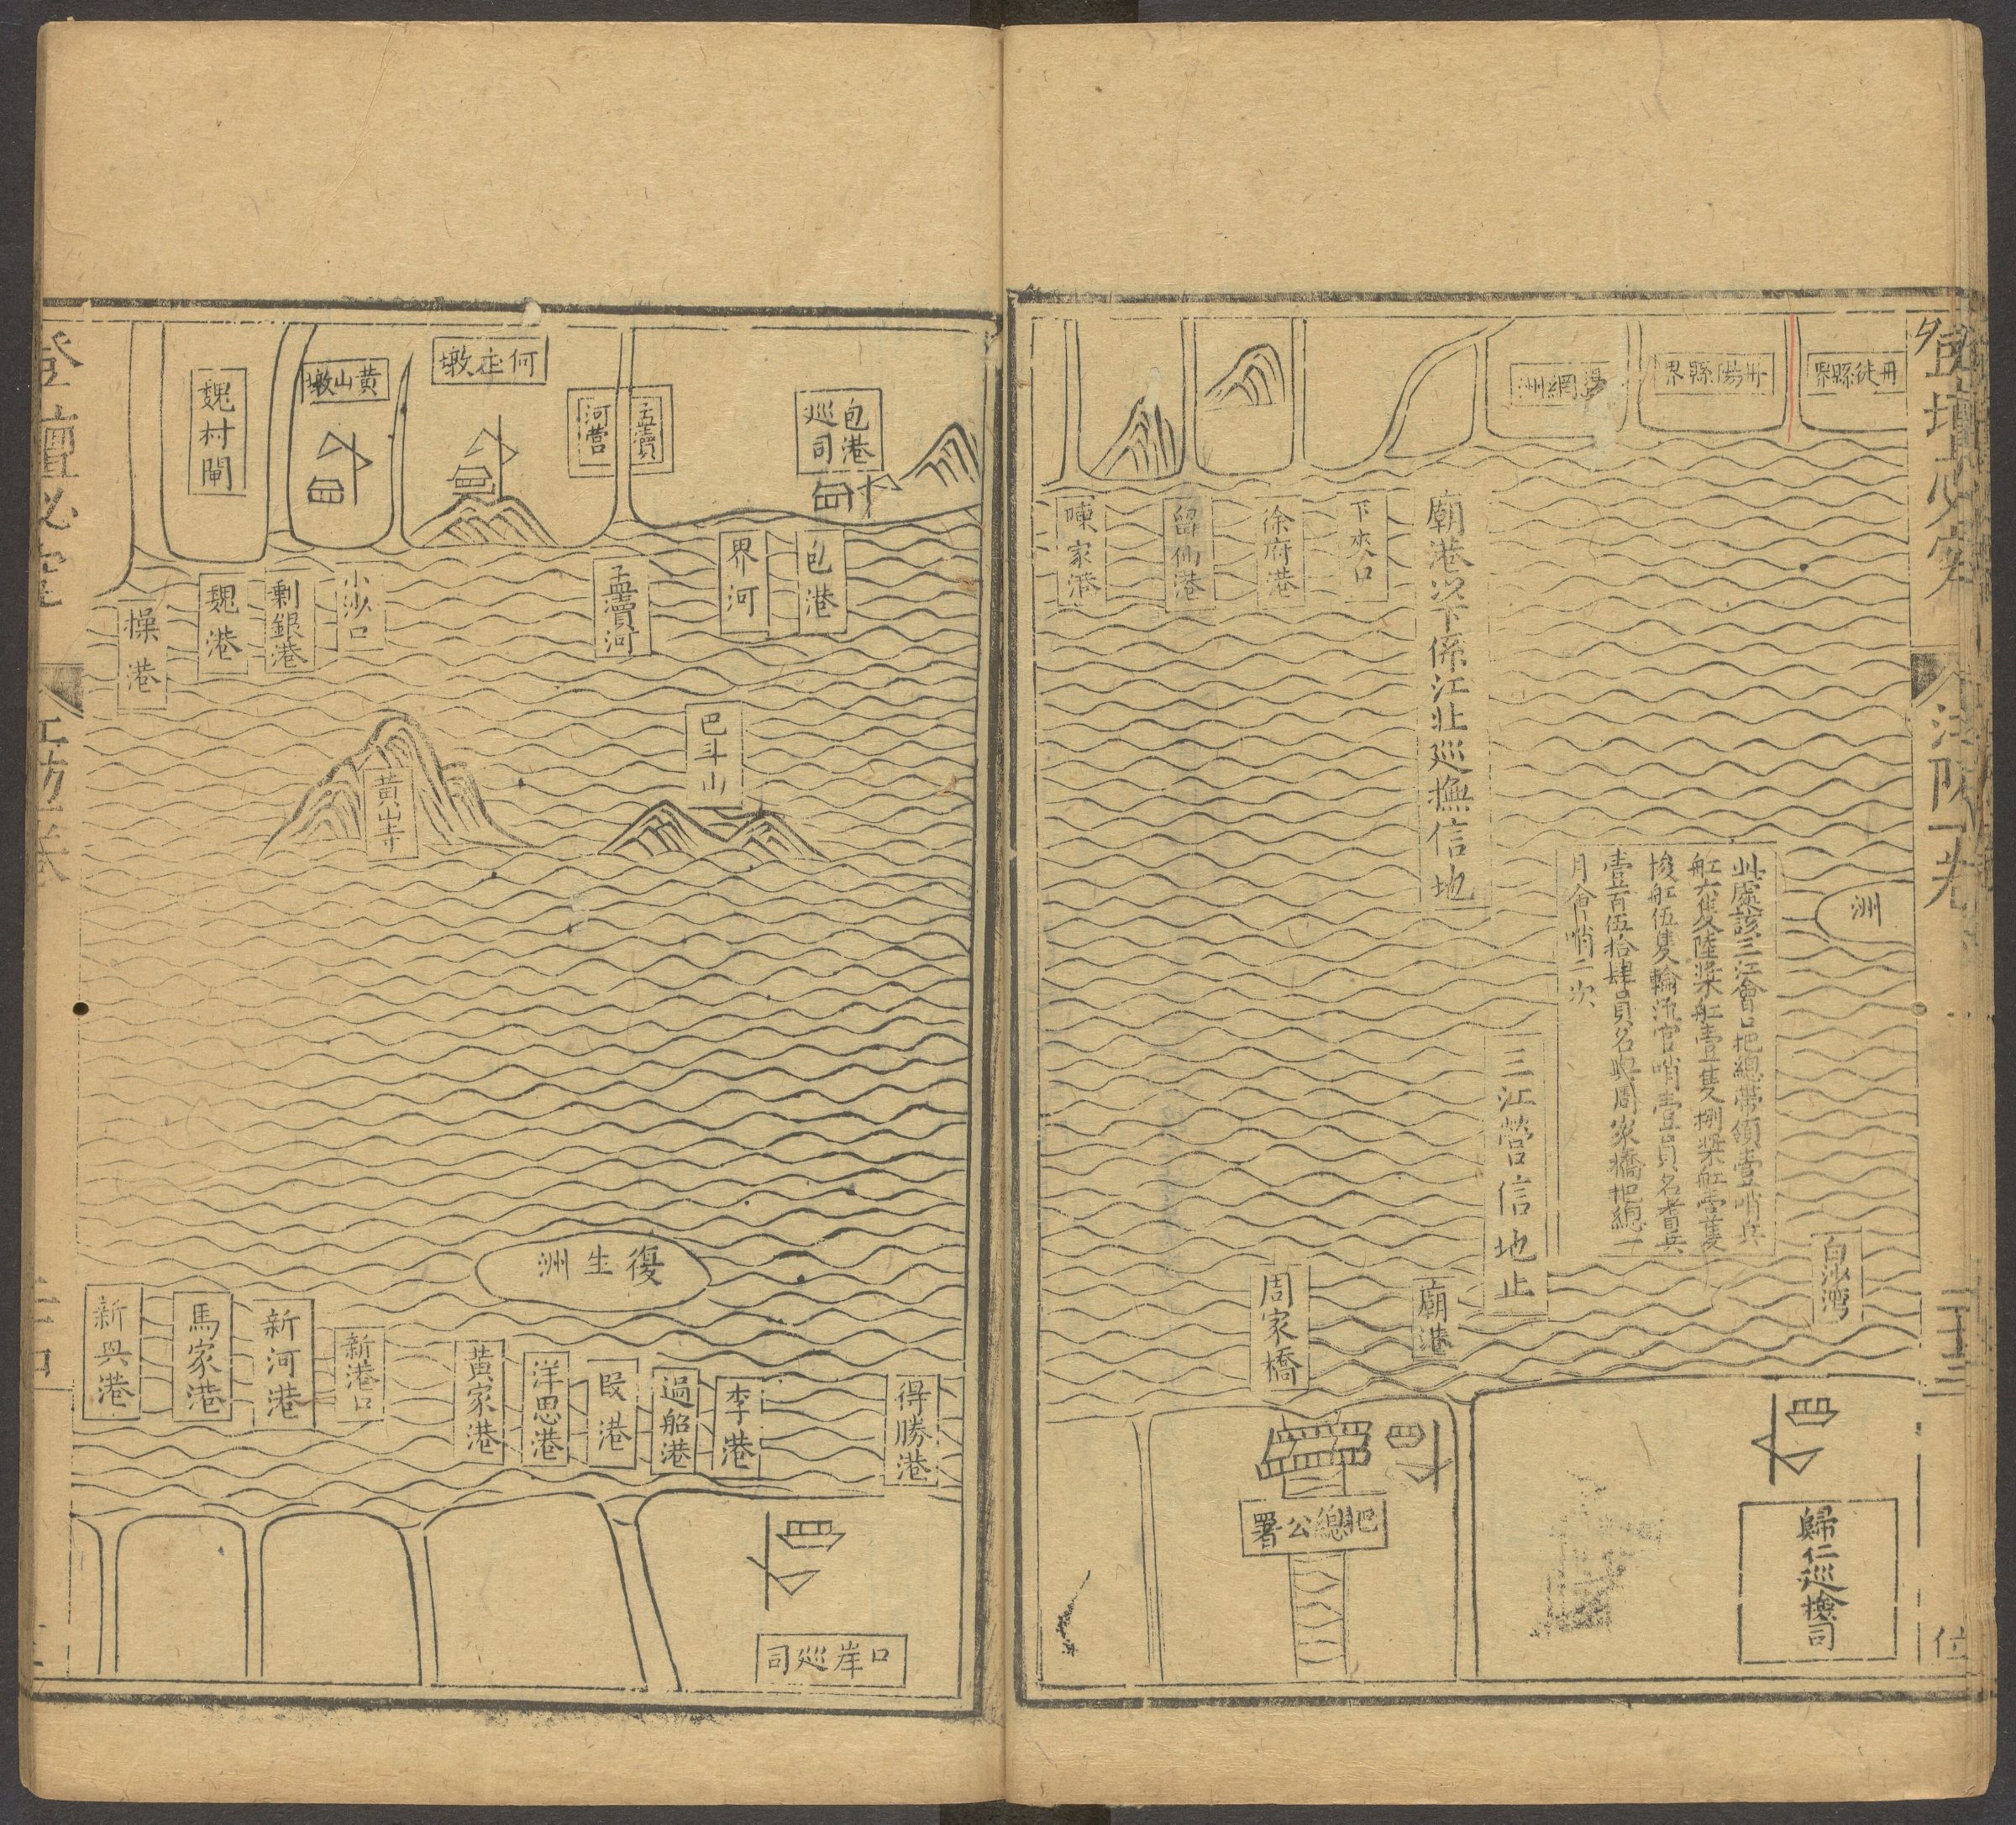 登壇必究
江防一卷
二十三
丹徒縣界
丹陽縣界
網洲
下夾口
徐府港
留仙港
陳家港
廟港以下係江北巡撫信地
洲
此處該三江會口把總帶領壹哨兵
舡六隻陸槳舡壹隻捌槳舡壹隻
梭舡伍隻輪流官哨壹員名耆兵
壹百伍拾肆員名與周家橋把總一
月會哨二次
三江營信地止
白沙湾
廟港
周家橋
把總公署
歸仁巡撿司
包港
巡司
孟瀆
河營
何庄墩
黄山墩
魏村閘
包港
界河
孟瀆河
小沙口
剩銀港
魏港
操港
巴斗山
黄山寺
復生洲
得勝港
李港
過船港
段港
洋思港
黄家港
新港口
新河港
馬家港
新興港
口岸巡司
登壇必究
江防一卷
二十四